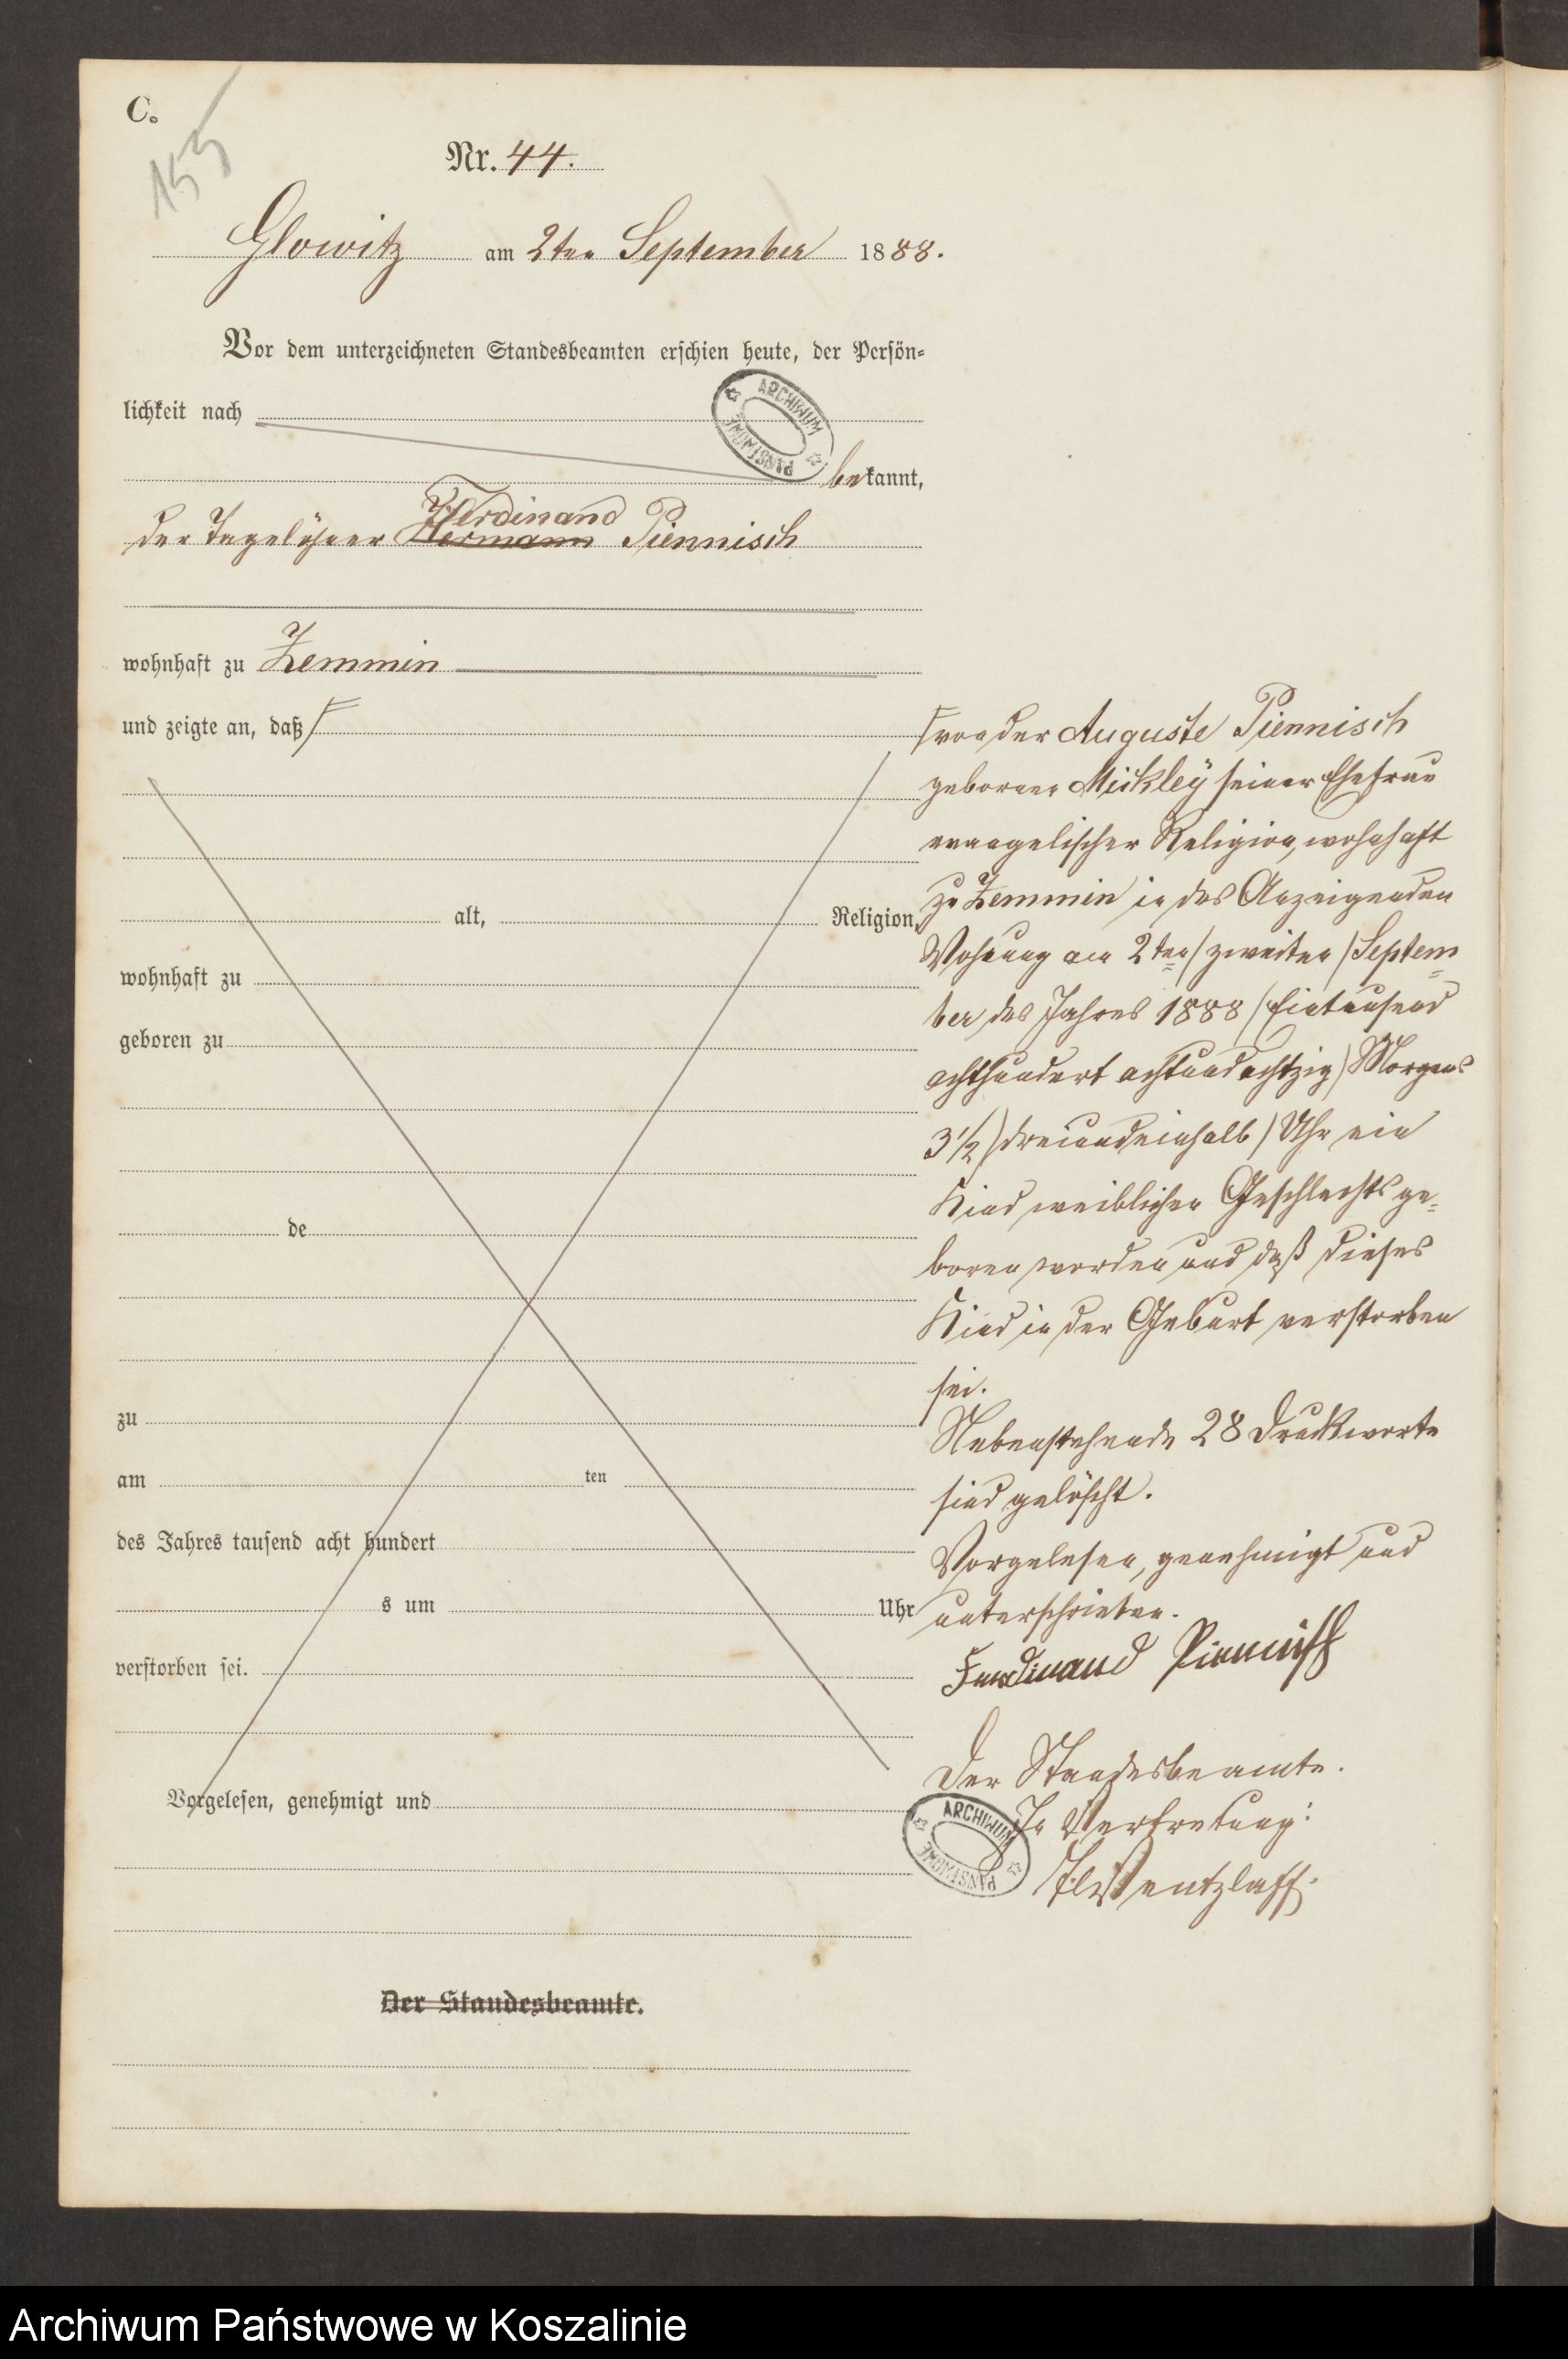 C.
155
Nr. 44.
Glowitz am 2ten September 1888.
Vor dem unterzeichneten Standesbeamten erschien heute, der Persön-
lichkeit nach
ARCHIWUM PAŃSTWOWE
bekannt,
Ferdinand
der Tagelöhner Hermann Piennisch
wohnhaft zu Zemmin
und zeigte an, daß
alt, Religion,
wohnhaft zu
geboren zu
de
zu
am ten
des Jahres tausend acht hundert
s um Uhr
verstorben sei.
Vorgelesen, genehmigt und
Der Standesbeamte.
von der Auguste Piennisch
geborenen Mickley seiner Ehefrau
evangelischer Religion, wohnhaft
zu Zemmin in des Anzeigenden
Wohnung am 2ten (zweiten) Septem=
ber des Jahres 1888 (Eintausend
achthundert achtundachtzig) Morgens
3½ (dreiundeinhalb) Uhr ein
Kind weiblichen Geschlechts ge=
boren worden und daß dieses
Kind in der Geburt verstorben
sei.
Nebenstehende 28 Druckworte
sind gelöscht.
Vorgelesen, genehmigt und
unterschrieben.
Ferdinand Piennisch
Der Standesbeamte.
In Vertretung:
ARCHIWUM PAŃSTWOWE
Wentzlaff.
Archiwum Państwowe w Koszalinie